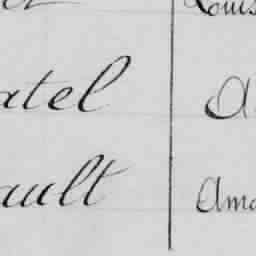 Louis
atel A
ault Ama